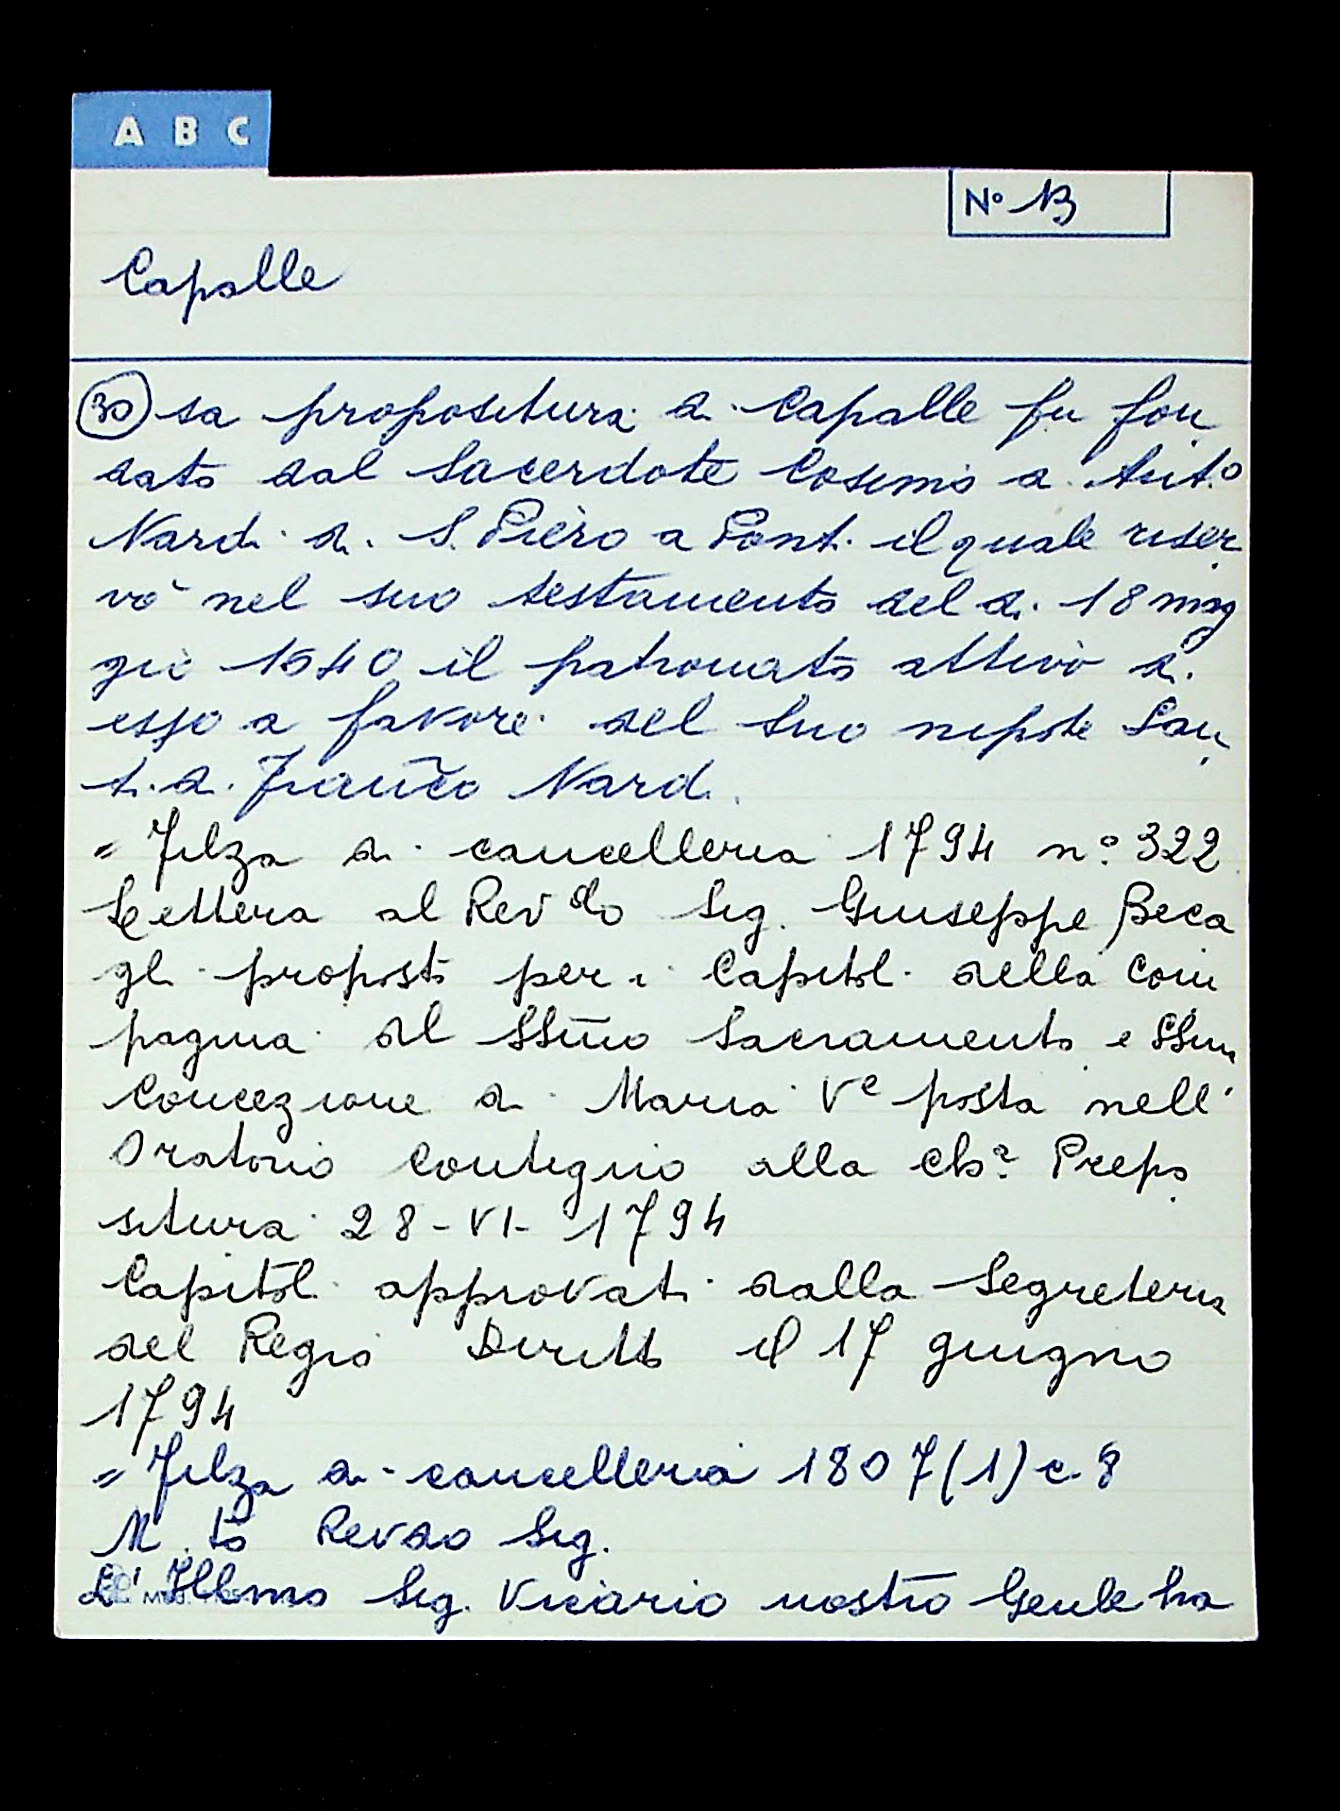 A B C
N° 13
Capalle
30 La propositura di Capalle fu fon
dato dal Sacerdote Cosimo di Ant.o
Nardi di S. Piero a Ponti il quale riser
vò nel suo testamento del dì 18 mag
gio 1640 il patronato attivo di
esso a favore del suo nipote San
ti di Franco Nardi.
= Filza di cancelleria 1794 n° 322
Lettera al Revdo Sig. Giuseppe Beca
gli proposto per i Capitoli della Com
pagnia del SSmo Sacramento e SSma
Concezione di Maria Ve posta nell'
Oratorio contiguo alla cha Prepo
situra 28-VI-1794
Capitoli approvati dalla Segreteria
del Regio Diritto il 17 giugno
1794
= Filza di cancelleria 1807(1) c. 8
M.to Revdo Sig.
L'Illmo Sig. Vicario nostro Genle ha